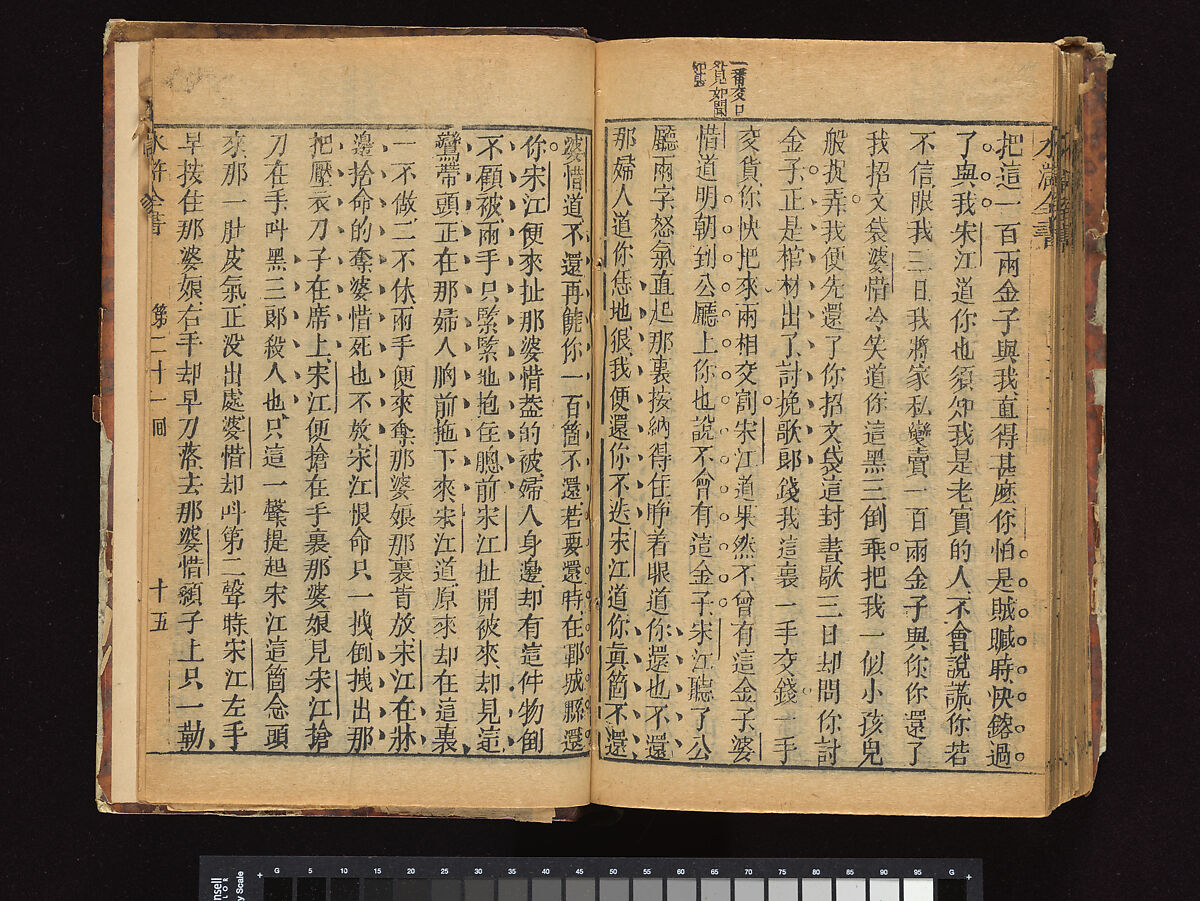 水滸全書
把這一百兩金子與我直得甚麽你怕是賊贓時快鎔過
了與我宋江道你也須知我是老實的人不會說謊你若
不信限我三日我將家私變賣一百兩金子與你你還了
我招文袋婆惜冷笑道你這黑三倒乖把我一似小孩兒
般捉弄我便先還了你招文袋這封書歇三日却問你討
金子正是棺材出了討挽歌郎錢我這裏一手交錢一手
交貨你快把來兩相交割宋江道果然不曾有這金子婆
惜道明朝到公廳上你也說不曾有這金子宋江聽了公
廳兩字怒氣直起那裏按納得住睁着眼道你還也不還
那婦人道你恁地很我便還你不迭宋江道你真箇不還
一番交口
如聞
婆惜道不還再饒你一百箇不還若要還時在鄆城縣還
你宋江便來扯那婆惜蓋的被婦人身邊却有這件物倒
不顧被兩手只𦂳𦂳地抱住胸前宋江扯開被來却見這
鸞帶頭正在那婦人胸前拖下來宋江道原來却在這裏
一不做二不休兩手便來奪那婆娘那裏肯放宋江在牀
邊捨命的奪婆惜死也不放宋江恨命只一拽倒拽出那
把壓衣刀子在席上宋江便搶在手裏那婆娘見宋江搶
刀在手叫黑三郎殺人也只這一聲提起宋江這箇念頭
來那一肚皮氣正没出處婆惜却叫第二聲時宋江左手
早按住那婆娘右手却早刀落去那婆惜顙子上只一勒
水滸全書
第二十一回
十五